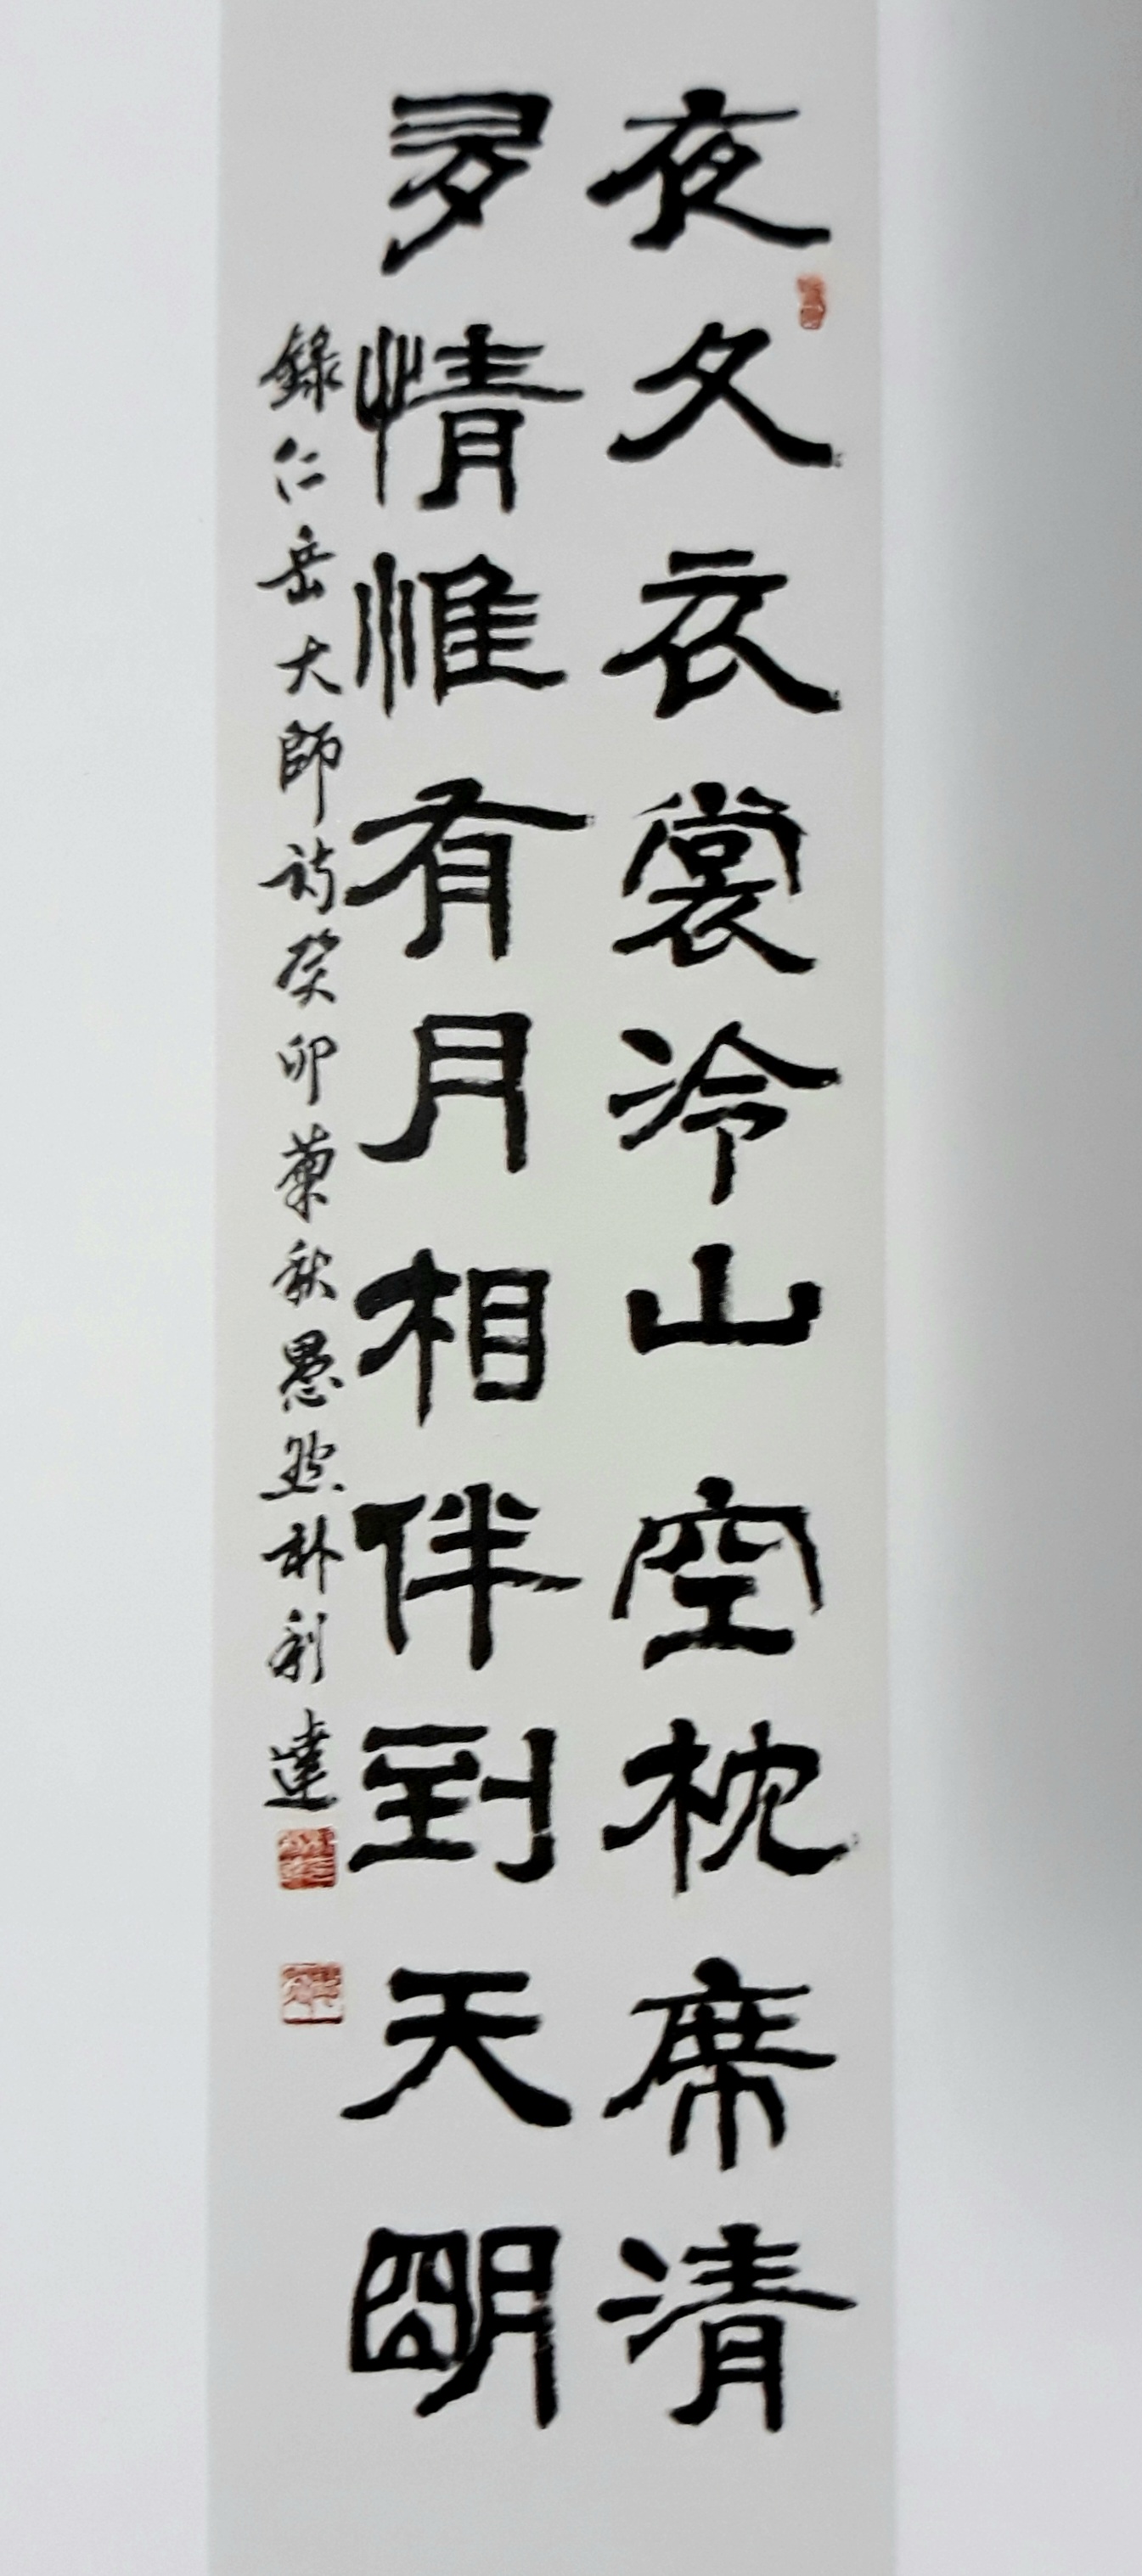 夜久衣裳冷山空枕席清
夛情惟有月相伴到天朙
錄仁岳大師詩癸卯菊秋愚朴利達